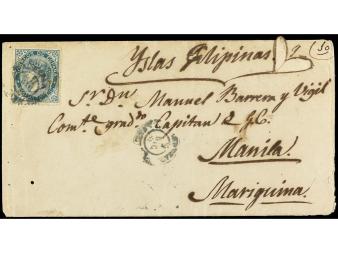 Yslas Filipinas 2 50
Sr. Dn. Manuel Barrera y Vigil
Comte. graddo. Capitan
Manila
Mariquina